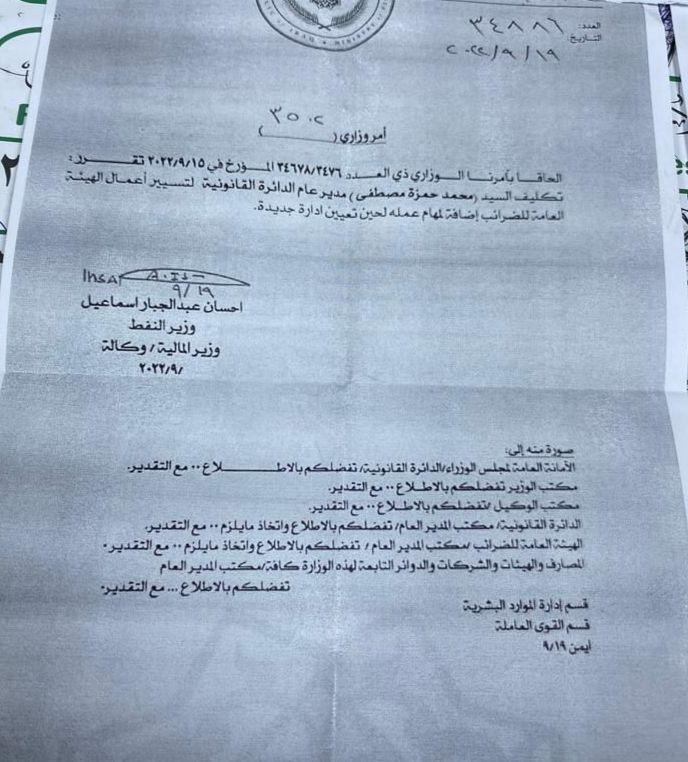 العدد: ٣٤٨٨٦
التاريخ: ٢٠٢٢/٩/١٩
أمر وزاري (٣٥٠٢)
الحاقا بأمرنا الوزاري ذي العدد ٣٤٦٧٨/٣٤٧٦ المؤرخ في ٢٠٢٢/٩/١٥ تقرر:
تكليف السيد (محمد حمزة مصطفى) مدير عام الدائرة القانونية لتسيير أعمال الهيئة
العامة للضرائب إضافة لمهام عمله لحين تعيين ادارة جديدة.
Ihsan
٩/١٩
احسان عبدالجبار اسماعيل
وزير النفط
وزير المالية/ وكالة
٢٠٢٢/٩/
صورة منه إلى:
الأمانة العامة لمجلس الوزراء/الدائرة القانونية/ تفضلكم بالاطلاع ٠٠ مع التقدير.
مكتب الوزير تفضلكم بالاطلاع ٠٠ مع التقدير.
مكتب الوكيل /تفضلكم بالاطلاع ٠٠ مع التقدير.
الدائرة القانونية/ مكتب المدير العام/ تفضلكم بالاطلاع واتخاذ مايلزم ٠٠ مع التقدير.
الهيئة العامة للضرائب /مكتب المدير العام / تفضلكم بالاطلاع واتخاذ مايلزم ٠٠ مع التقدير.
المصارف والهيئات والشركات والدوائر التابعة لهذه الوزارة كافة/مكتب المدير العام
تفضلكم بالاطلاع ... مع التقدير.
قسم إدارة الموارد البشرية
قسم القوى العاملة
أيمن ٩/١٩